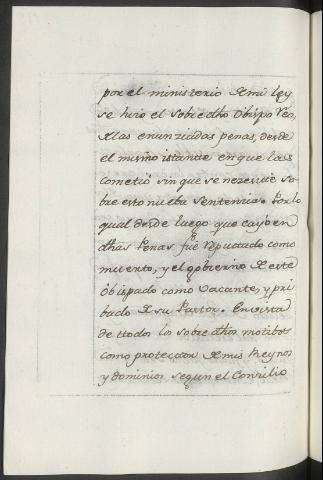 por el ministerio de mi ley
se hizo el sobre dho Obispo reo,
de las enunziadas penas, desde
el mismo istante en que las
cometió sin que se nezesite so-
bre esto nueba sentenzia. Por lo
qual desde luego que cayó en
dhas Penas fué reputado como
muerto, y el gobierno de este
Obispado como vacante, y pri-
bado de su Pastor. En vista
de ttodos los sobre dhos motibos
como protector de mis Reynos
y dominios segun el Consilio